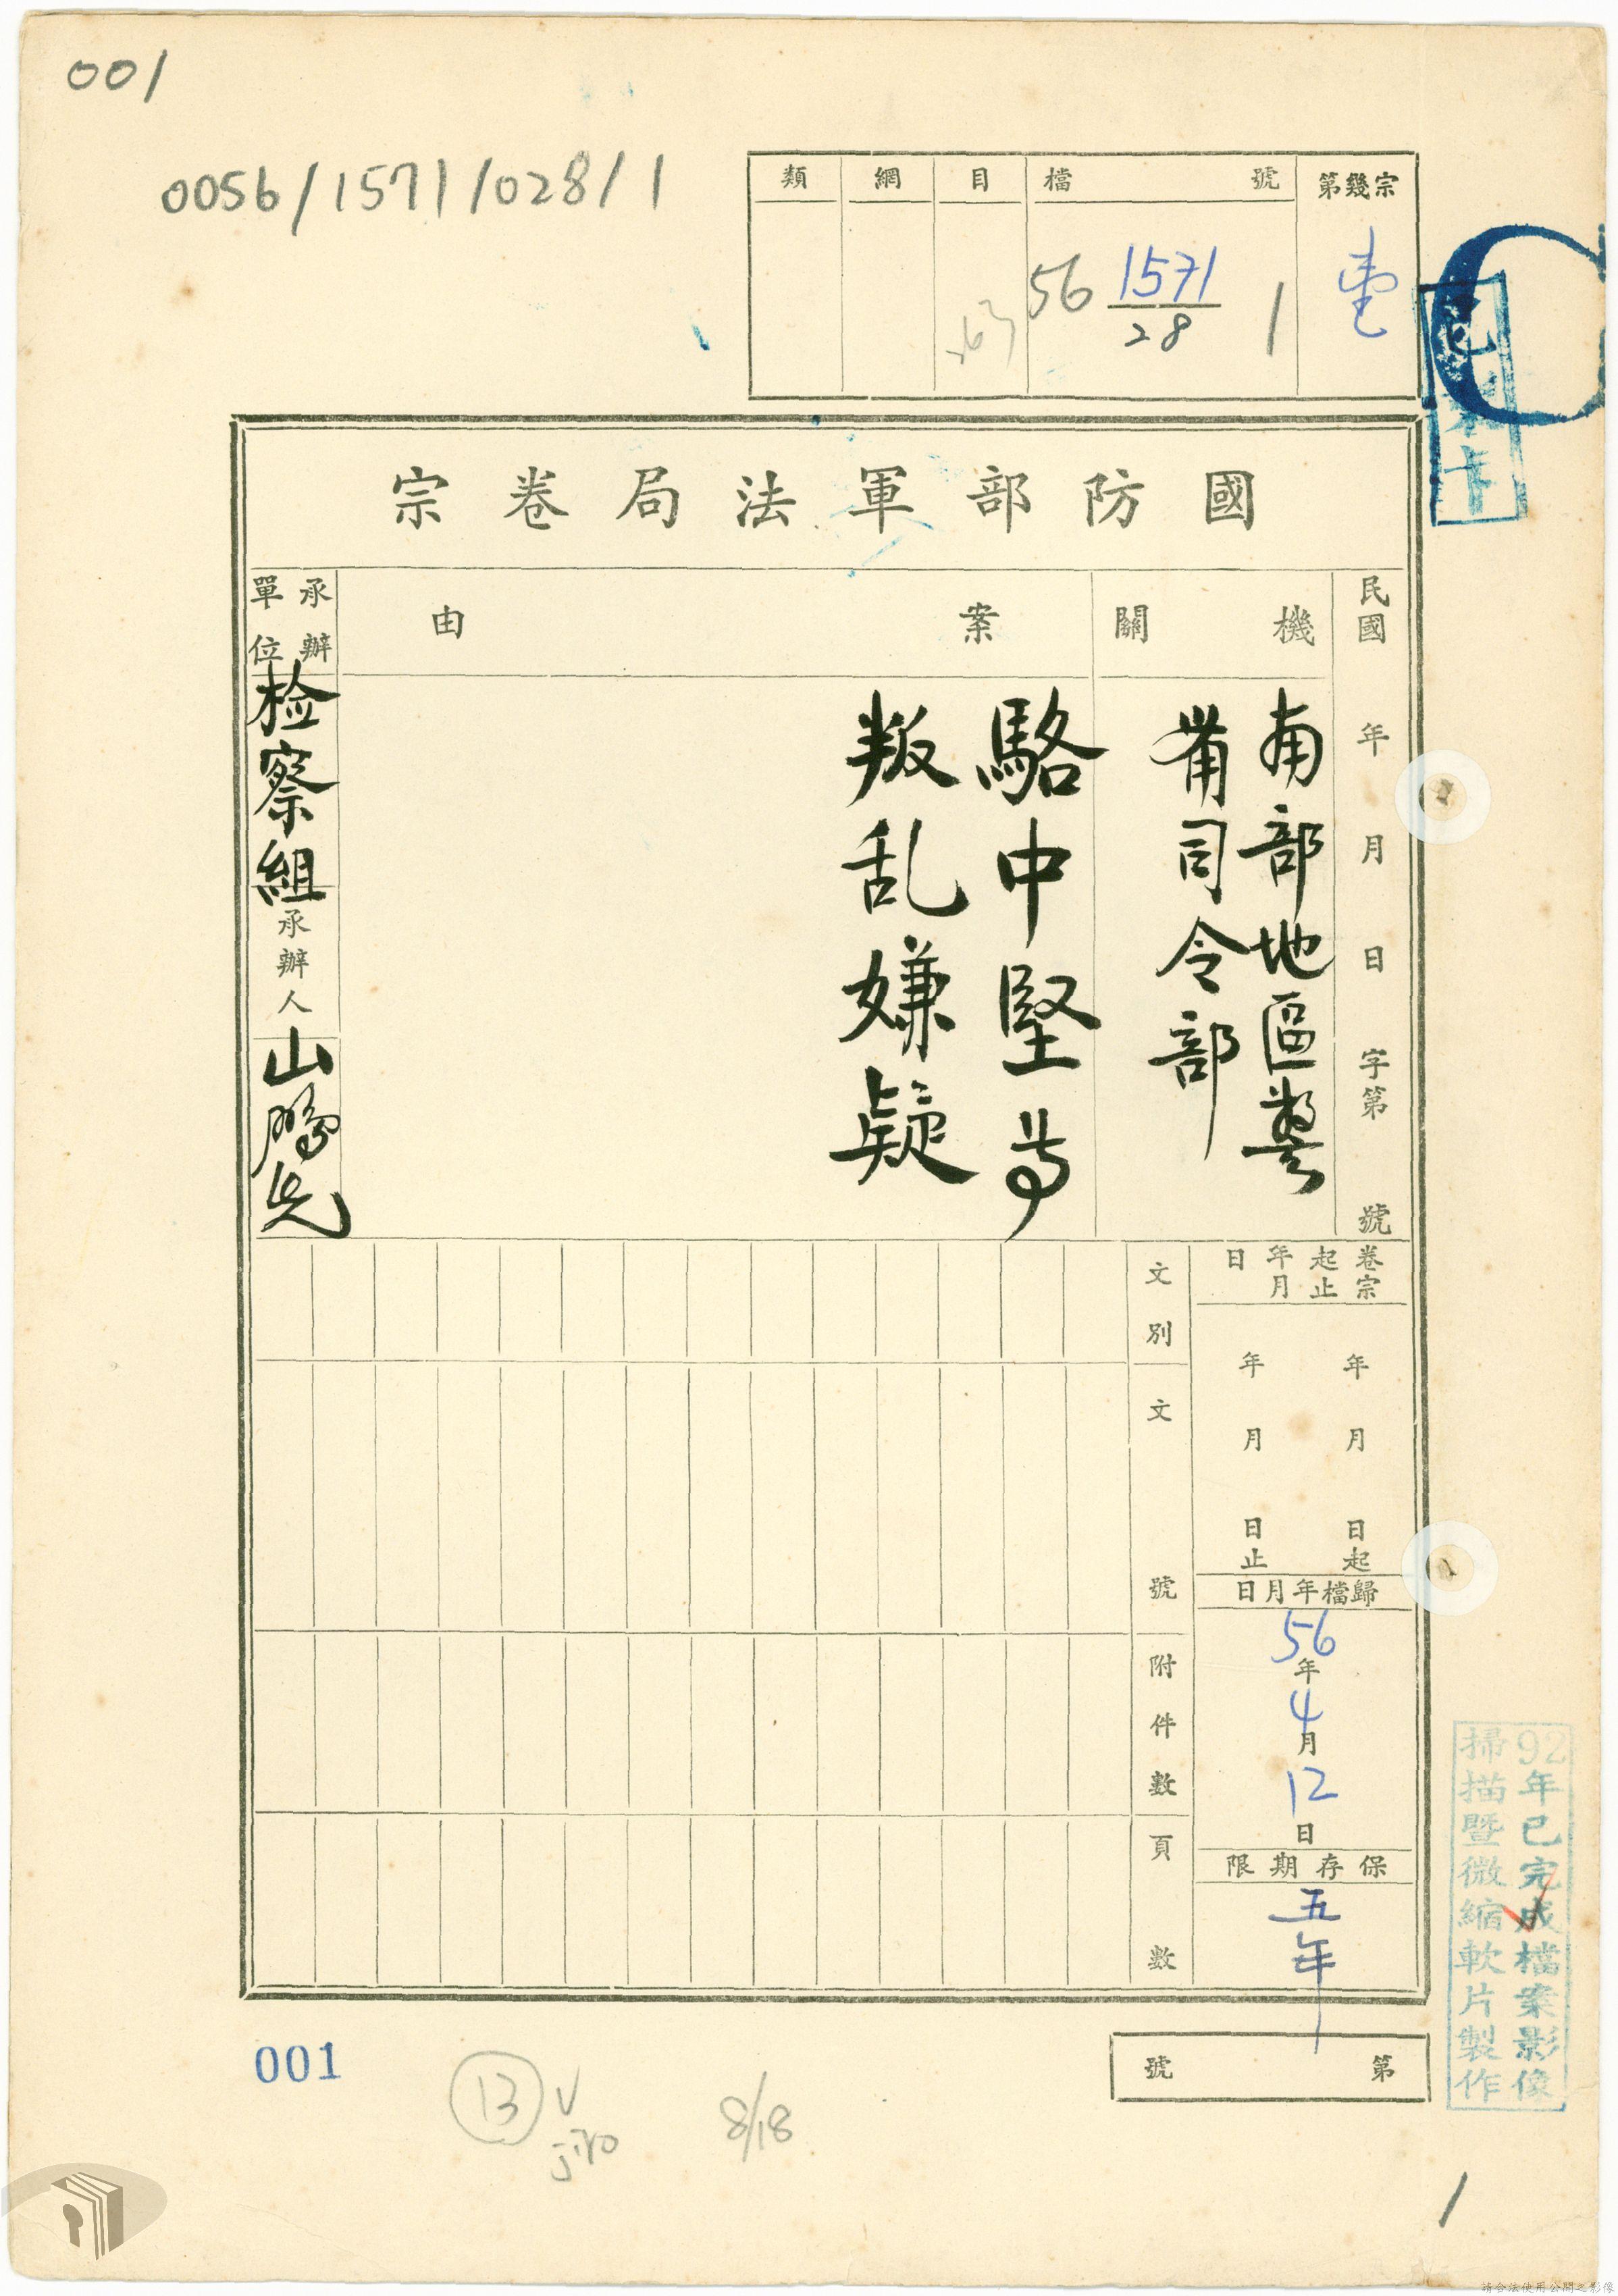 001
0056/1571/028/1
類
綱
目
檔號
第幾宗
56 1571/28 1
壹
C
國防部軍法局卷宗
民國 年 月 日 字第 號
機關
南部地區警
備司令部
案由
駱中堅等
叛乱嫌疑
承辦單位
检察組
承辦人
山鵬先
卷宗起止年月日
年 月 日起
年 月 日止
歸檔年月日
56年4月12日
保存期限
五年
文別
文號
附件數
頁數
第 號
92年已完成檔案影像
掃描暨微縮軟片製作
001
13 V
8/18
1
請合法使用公開之影像